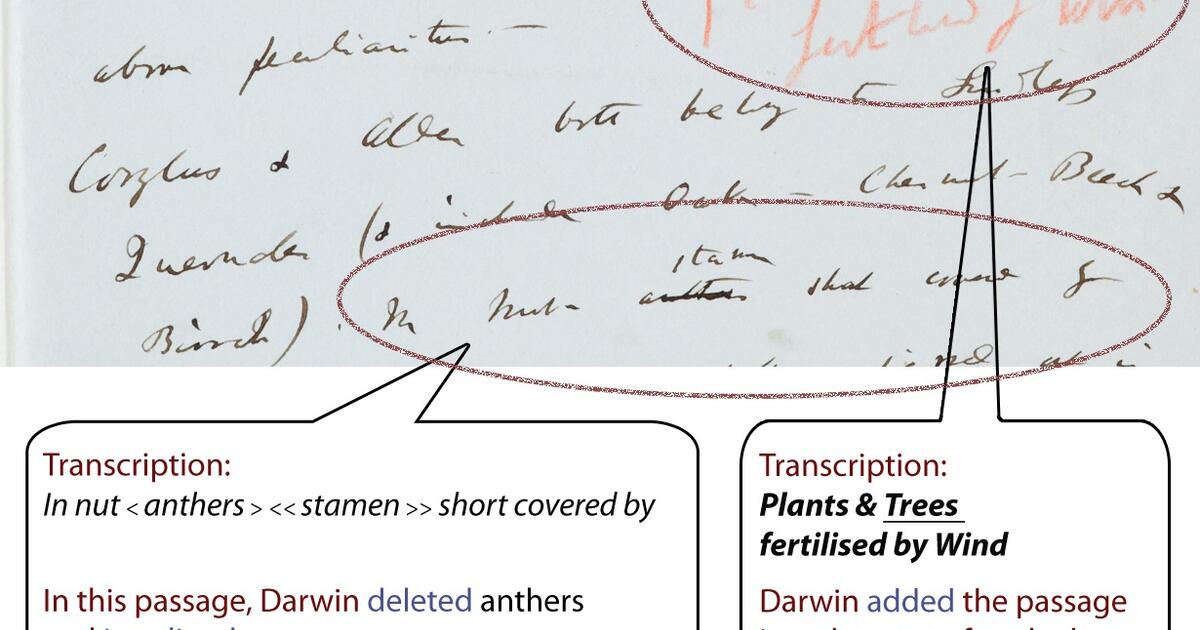 fertilised by Wind
above peculiarities. —
Corylus & Alder both belong to
Quernales (& include Oak — Chesnut — Beech &
Birch). In Nut- anthers stamen short covered by
Transcription:
In nut < anthers > << stamen >> short covered by
In this passage, Darwin deleted anthers
Transcription:
Plants & Trees
fertilised by Wind
Darwin added the passage